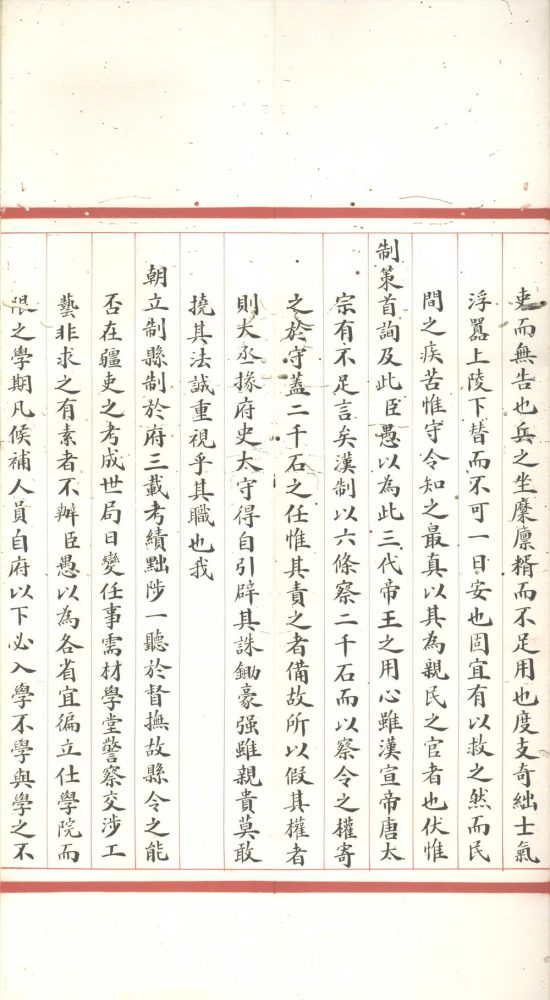 吏而無告也兵之坐糜廪糈而不足用也度支奇絀士氣
浮囂上陵下替而不可一日安也固宜有以救之然而民
間之疾苦惟守令知之最真以其為親民之官者也伏惟
制策首詢及此臣愚以為此三代帝王之用心雖漢宣帝唐太
宗有不足言矣漢制以六條察二千石而以察令之權寄
之於守蓋二千石之任惟其責之者備故所以假其權者
則大丞掾府史太守得自引辟其誅鋤豪强雖親貴莫敢
撓其法誠重視乎其職也我
朝立制縣制於府三載考績黜陟一聽於督撫故縣令之能
否在疆吏之考成世局日變任事需材學堂警察交涉工
藝非求之有素者不辦臣愚以為各省宜徧立仕學院而
限之學期凡候補人員自府以下必入學不學與學之不